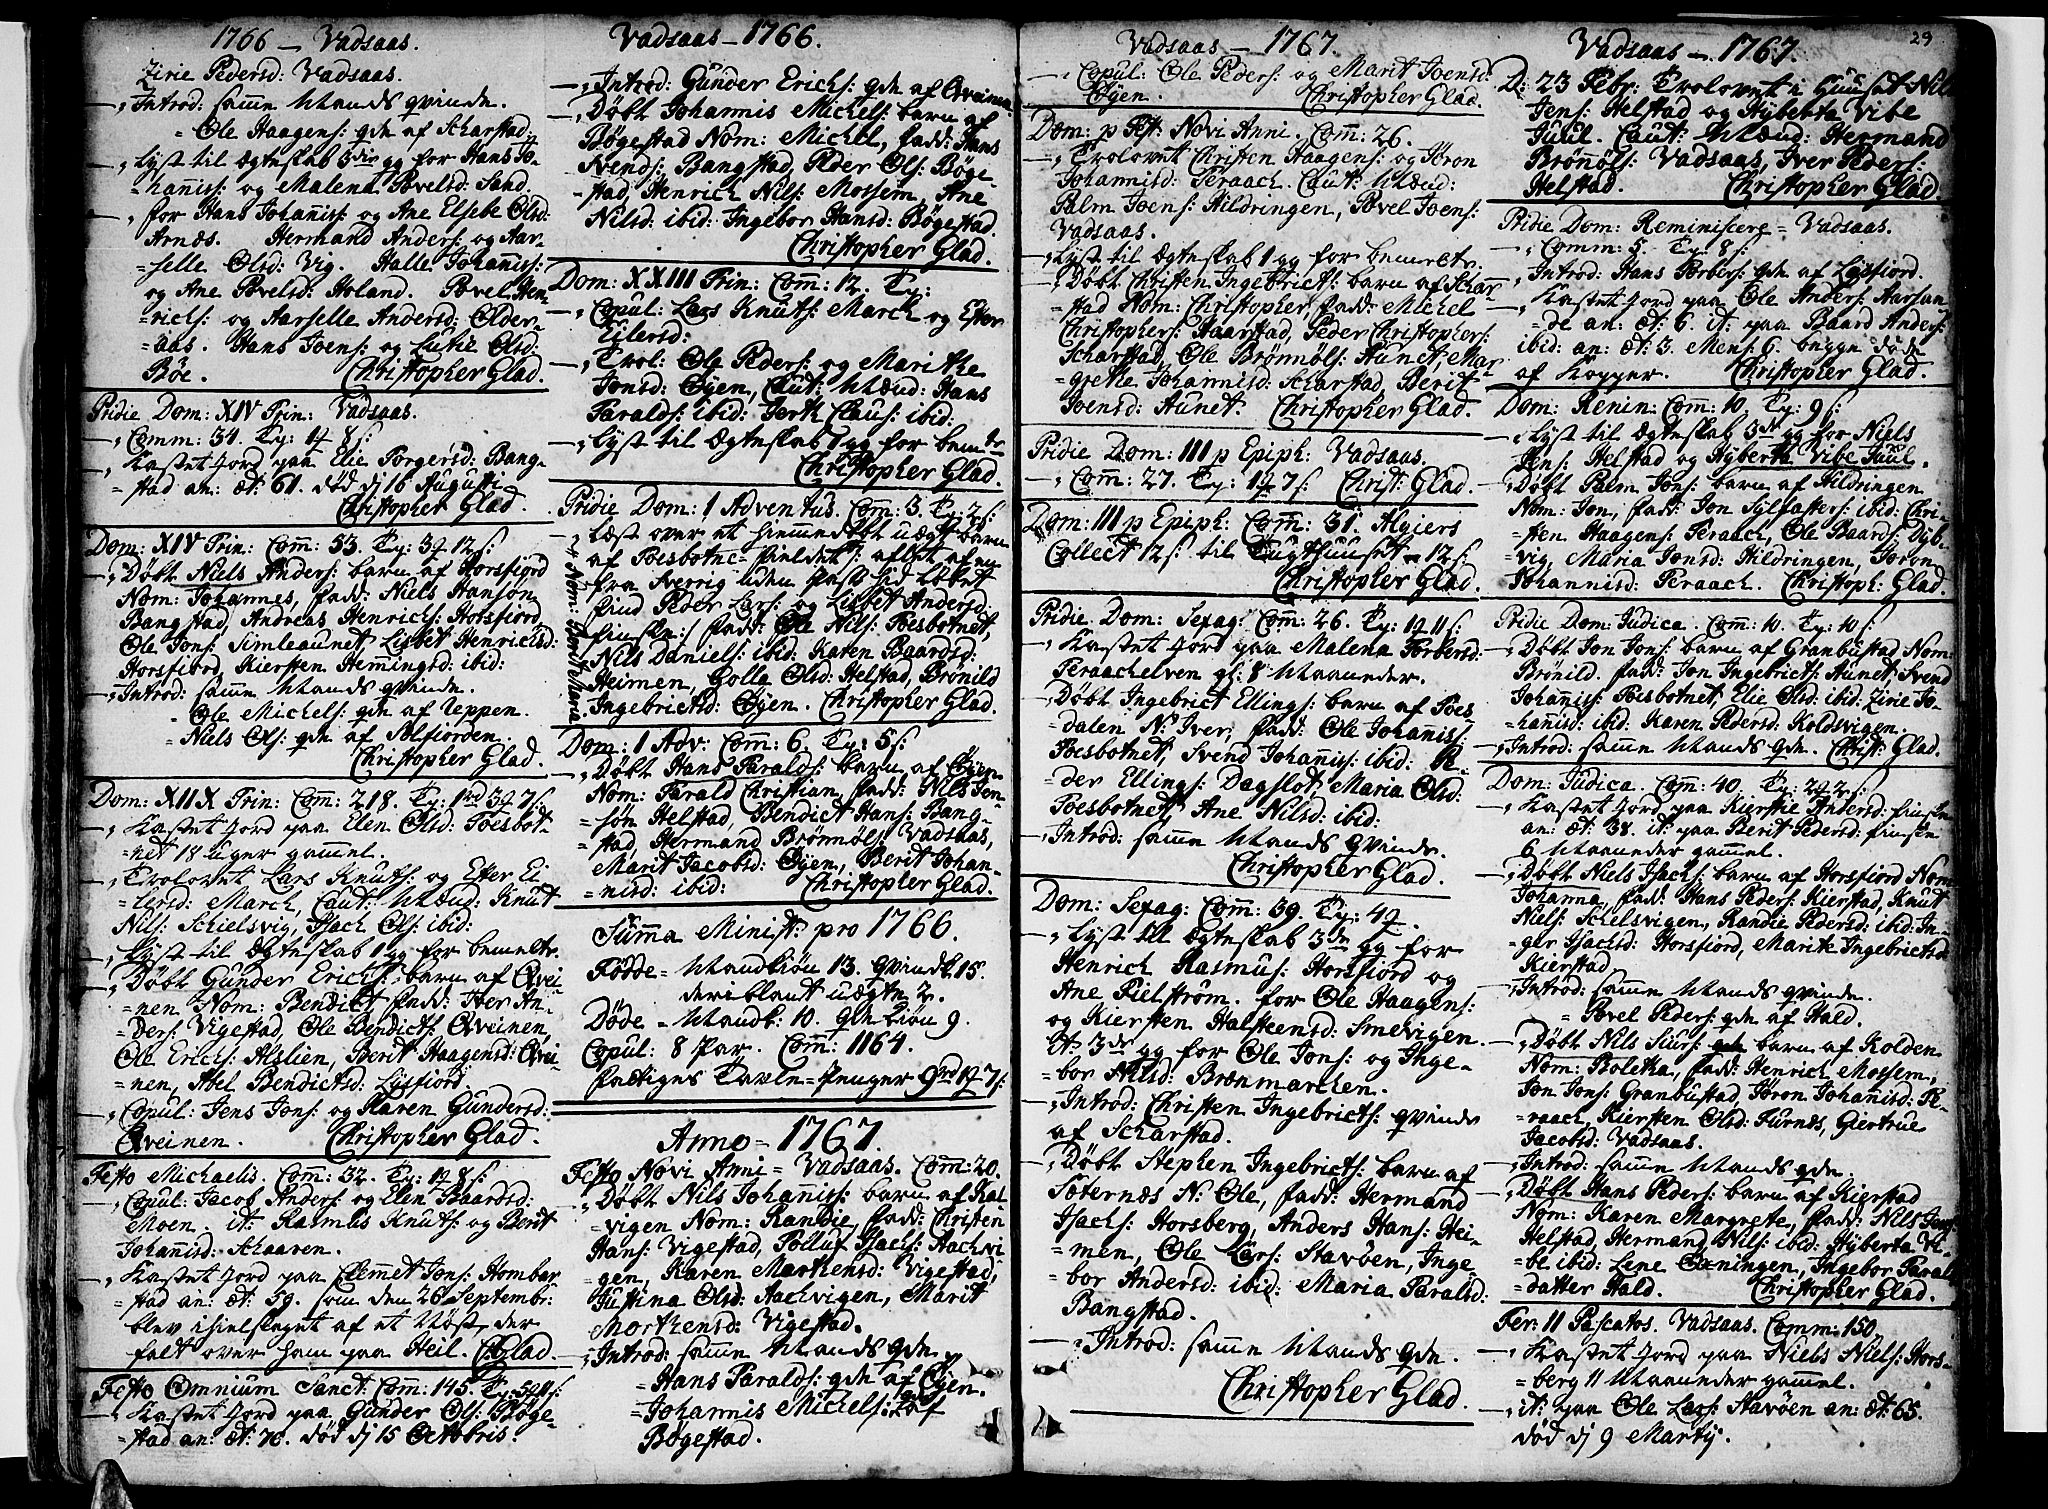 1766 — Vadsaas.
Zirie Pedersd: Vadsaas.
—, Introd: samme Mands qvinde.
= Ole Haagens: qde af Scharstad.
—, Lyst til Ægteskab 3die gg for Hans Jo-
=hanniss: og Malena Povelsd: Sand.
—, for Hans Johañiss: og Ane Elsebe Olsd:
Arnæs. Hermand Anders: og Aar-
=selle Olsd: Vig. Halle Johañiss:
og Ane Povelsd: Holand. Povel Hen-
=richs: og Aarselle Andersd: Older-
=aas. Hans Joens: og Lucie Olsd:
Böe. Christopher Glad.
Pridie Dom: XIV Trin: Vadsaas.
—, Comm: 34. Ty: 1 8 s:
—, Kastet Jord paa Elie Torgersd: Bang-
=stad an: æt: 61. död dj 16 Augusti
Christopher Glad.
Dom: XIV Trin: Com̃: 53. Ty: 3 12 s:
—, Döbt Niels Anders: barn af Horsfiord
Nom: Johannes, fadd: Niels Hansön
Bangstad, Andreas Henrichs: Horsfiord,
Ole Jons: Simleaunet, Lisbet Henrichsd:
Horsfiord, Kiersten Hemingsd: ibid:
—, Introd: sam̃e Mands qvinde.
= Ole Michels: qde af Teppen.
= Niels Ols: qde af Solfiorden.
Christopher Glad.
Dom: XIIX Trin: Com̃: 218. Ty: 1rd 3 7 s:
—, Kastet Jord paa Elen Olsd: Foesbot-
=net 18 uger gammel.
—, Trolovet Lars Knuts: og Ester Ei-
=lersd: March, Caut: Mænd: Knut
Nils: Schielsvig, Isach Ols: ibid:
—, Lyst til Ægteskab 1 gg for bemelte.
—, Döbt Gunder Erichs: barn af Qvei-
=nen Nom: Bendict, fadd: Iver An-
=ders: Vigestad, Ole Bendicts: Qveinen,
Ole Erichs: Alslien, Berit Haagensd: Qvei-
=nen, Abel Bendictsd: Lysfiord.
—, Copul: Jens Jons: og Karen Gundersd:
Qveinen. Christopher Glad.
Festo Michaelis. Com̃: 32. Ty: 1 8 s:
—, Copul: Jacob Anders: og Elen Baardsd:
Moen. it: Rasmus Knuts: og Berit
Johañisd: Schaaren.
—, Kastet Jord paa Clemmet Jons: Hombar-
=stad an: æt: 59. som den 20 Septembr:
blev ihielslaget af et Nöst, der
falt over ham paa Heil. C: Glad.
Festo Omnium Sanct: Com̃: 145. Ty:
—, Kastet Jord paa Gunder Ols: Böge-
=stad an: æt: 70. död dj 15 Octobris.
Vadsaas — 1766.
—, Introd: Gunder Erichs: qde af Qveinen
—, Döbt Johannis Michels: barn af
Bögestad Nom: Michel, fadd: Hans
Svends: Bangstad, Peder Ols: Böge-
=stad, Henrich Nils: Mossem, Ane
Nilsd: ibid: Ingebor Hansd: Bögestad.
Christopher Glad.
Dom: XXIII Trin: Com̃: 12. Ty:
—, Copul: Lars Knuts: March og Ester
Eilersd:
—, Trol: Ole Peders: og Marithe
Jonsd: Öyen, Caut: Mænd: Hans
Taralds: ibid: Jertk Claus: ibid:
—, Lyst til Ægteskab 1 gg for bemte
Christopher Glad.
Pridie Dom: 1 Adventus. Com̃: 3. Ty: 2 s:
—, Læst over et hiemmedöbt uægt barn
af Foesbotne-fieldet /: aflet af en
fra Sverrig uden Pass hid löbet
find Peder Lars: og Lisbet Andersd:
finske :/ fadd: Ole Nils: Foesbotnet,
Nils Daniels: ibid: Karen Baardsd:
Heimen, Golla Olsd: Helstad, Brönild
Ingebrictsd: Öyen. Christopher Glad.
Nom: Maria
Dom: 1 Adv: Com̃: 6. Ty: 5 s:
—, Döbt Hans Taralds: barn af Öyen
Nom: Tarald Christian, fadd: Nils Jen-
=sön Helstad, Bendict Hans: Bang-
=stad, Hermand Brönnöls: Vadsaas,
Marit Jacobsd: Öyen, Berit Johan-
=nisd: ibid: Christopher Glad.
Summa Minist: pro 1766.
Födde = Mandkiön 13. Qvindk: 15.
deriblant uægte 2.
Döde = Mandk: 10. Qdekiön 9.
Copul: 8 Par. Com̃: 1164.
Fattiges Tavle-Penger 9rd 1 7 s:
Anno = 1767.
Festo Novi Anni = Vadsaas. Com̃: 20.
—, Döbt Nils Johañiss: barn af Kal-
=vigen Nom: Randie, fadd: Christen
Hans: Vigestad, Polluf Isachs: Aachvi-
=gen, Karen Mortensd: Vigestad,
Justina Olsd: Aachvigen, Marit
Mortensd: Vigestad.
—, Introd: sam̃e Mands qde
= Hans Taralds: qde af Öyen.
= Johannis Michels: qde af
Bögestad.
Vadsaas — 1767.
—, Copul: Ole Peders: og Marit Joensd:
Öyen. Christopher Glad.
Dom: p Fest: Novi Anni. Com̃: 26.
—, Trolovet Christen Haagens: og Jöron
Johannisd: Teraach. Caut: Mænd:
Palm Joens: Hildringen, Povel Joens:
Vadsaas.
—, Lyst til Ægteskab 1 gg for bemelte.
—, Döbt Christen Ingebricts: barn af Schar-
=stad Nom: Christopher, fadd: Michel
Christophers: Haarstad, Peder Christophers:
Scharstad, Ole Brönnöls: Aunet, Mar-
=grethe Johannisd: Scharstad, Berit
Joensd: Aunet. Christopher Glad.
Pridie Dom: III p Epiph: Vadsaas.
—, Com̃: 27. Ty: 1 7 s: Christ: Glad.
Dom: III p Epiph: Com̃: 31. Algiers
Collect 12 s: til Tugthuuset — 12 s:
Christopher Glad.
Pridie Dom: Sexag: Com̃: 26. Ty: 1 11 s:
—, Kastet Jord paa Malena Torbersd:
Teraachelven gl: 8 Maaneder.
—, Döbt Ingebrict Ellings: barn af Foes-
=dalen N: Iver, fadd: Ole Johañiss:
Foesbotnet, Svend Johañiss: ibid: Pe-
=der Ellings: Dagslot, Maria Olsd:
Foesbotnet, Ane Nilsd: ibid:
—, Introd: sam̃e Mands qvinde.
Christopher Glad.
Dom: Sexag: Com̃: 39. Ty: 4
—, Lyst til Ægteskab 3die gg for
Henrich Rasmus: Horsfiord og
Ane Fielström. for Ole Haagens:
og Kiersten Halsteensd: Smelvigen.
it: 3die gg for Ole Jons: og Inge-
=bor Nilsd: Brænmarchen.
—, Introd: Christen Ingebricts: qvinde
af Scharstad.
—, Döbt Stephen Ingebricts: barn af
Soternæs N: Ole, fadd: Hermand
Isachs: Horsberg, Anders Hans: Hei-
=men, Ole Lars: Stavöen, Inge-
=bor Andersd: ibid: Maria Taralsd:
Bangstad.
—, Introd: sam̃e Mands qde.
Christopher Glad.
Vadsaas — 1767.
29
D: 23 Febr: Trolovet i Huuset Nils
Jens: Helstad og Hyberta Vibe
Juul. Caut: Mænd: Hermand
Brönöls: Vadsaas, Iver Peders:
Helstad. Christopher Glad.
Pridie Dom: Reminiscere = Vadsaas.
—, Comm: 5. Ty: 8 s:
—, Introd: Hans Torbers: qde af Lysfiord.
—, Kastet Jord paa Ole Anders: Aarsan-
=de an: æt: 6. it: paa Baard Anders:
ibid: an: æt: 3. Mens: 6. begge döde
af Kopper. Christopher Glad.
Dom: Remin: Com̃: 10. Ty: 9 s:
—, Lyst til Ægteskab 3die gg for Niels
Jens: Helstad og Hyberta Vibe Juul.
—, Döbt Palm Jons: barn af Hildringen
Nom: Jon, fadd: Jon Sylfasters: ibid: Chri-
=sten Haagens: Teraach, Ole Baards: Dyb-
=vig, Maria Jonsd: Hildringen, Joron
Johannisd: Teraach. Christoph: Glad.
Pridie Dom: Judica. Com̃: 10. Ty: 10 s:
—, Döbt Jon Jons: barn af Granbustad Nom:
Brönild. fadd: Jon Ingebricts: Aunet, Svend
Johañiss: Foesbotnet, Elie Olsd: ibid: Zirie Jo-
=hañisd: ibid: Karen Pedersd: Koldsvigen.
—, Introd: sam̃e Mands qde. Christ: Glad.
Dom: Judica. Com̃: 40. Ty: 2 2 s:
—, Kastet Jord paa Kierstie Andersd: finske
an: æt: 38. it: paa Berit Pedersd: finsken
6 Maaneder gammel.
—, Döbt Niels Isachs: barn af Horsfiord Nom:
Johanna, fadd: Hans Peders: Kierstad, Knut
Niels: Schelsvigen, Randie Pedersd: ibid: In-
=ger Isachsd: Horsfiord, Marite Ingebrictsd:
Kierstad
—, Introd: sam̃e Mands qvinde.
= Povel Peders: qde af Hald.
—, Döbt Nils Siurs: barn af Kolden
Nom: Roletha, fadd: Henrich Mossem,
Jon Jons: Granbustad, Jöron Johanisd: Te-
=raach, Kiersten Olsd: Furnes, Giertrue
Jacobsd: Vadsaas.
—, Introd: sam̃e Mands qde.
—, Döbt Hans Peders: barn af Kierstad
Nom: Karen Margrete, fadd: Nils Jens:
Helstad, Hermand Nils: ibid: Hyberta Vi-
=be ibid: Lene Qveningen, Ingebor Tarals-
=datter Hald. Christopher Glad.
Fer: II Pascatos. Vadsaas. Comm: 150.
—, Kastet Jord paa Niels Niels: Hors-
=berg 11 Maaneder gammel.
—, it: paa Ole Lars: Stavöen an: æt: 65.
död dj 9 Martij.